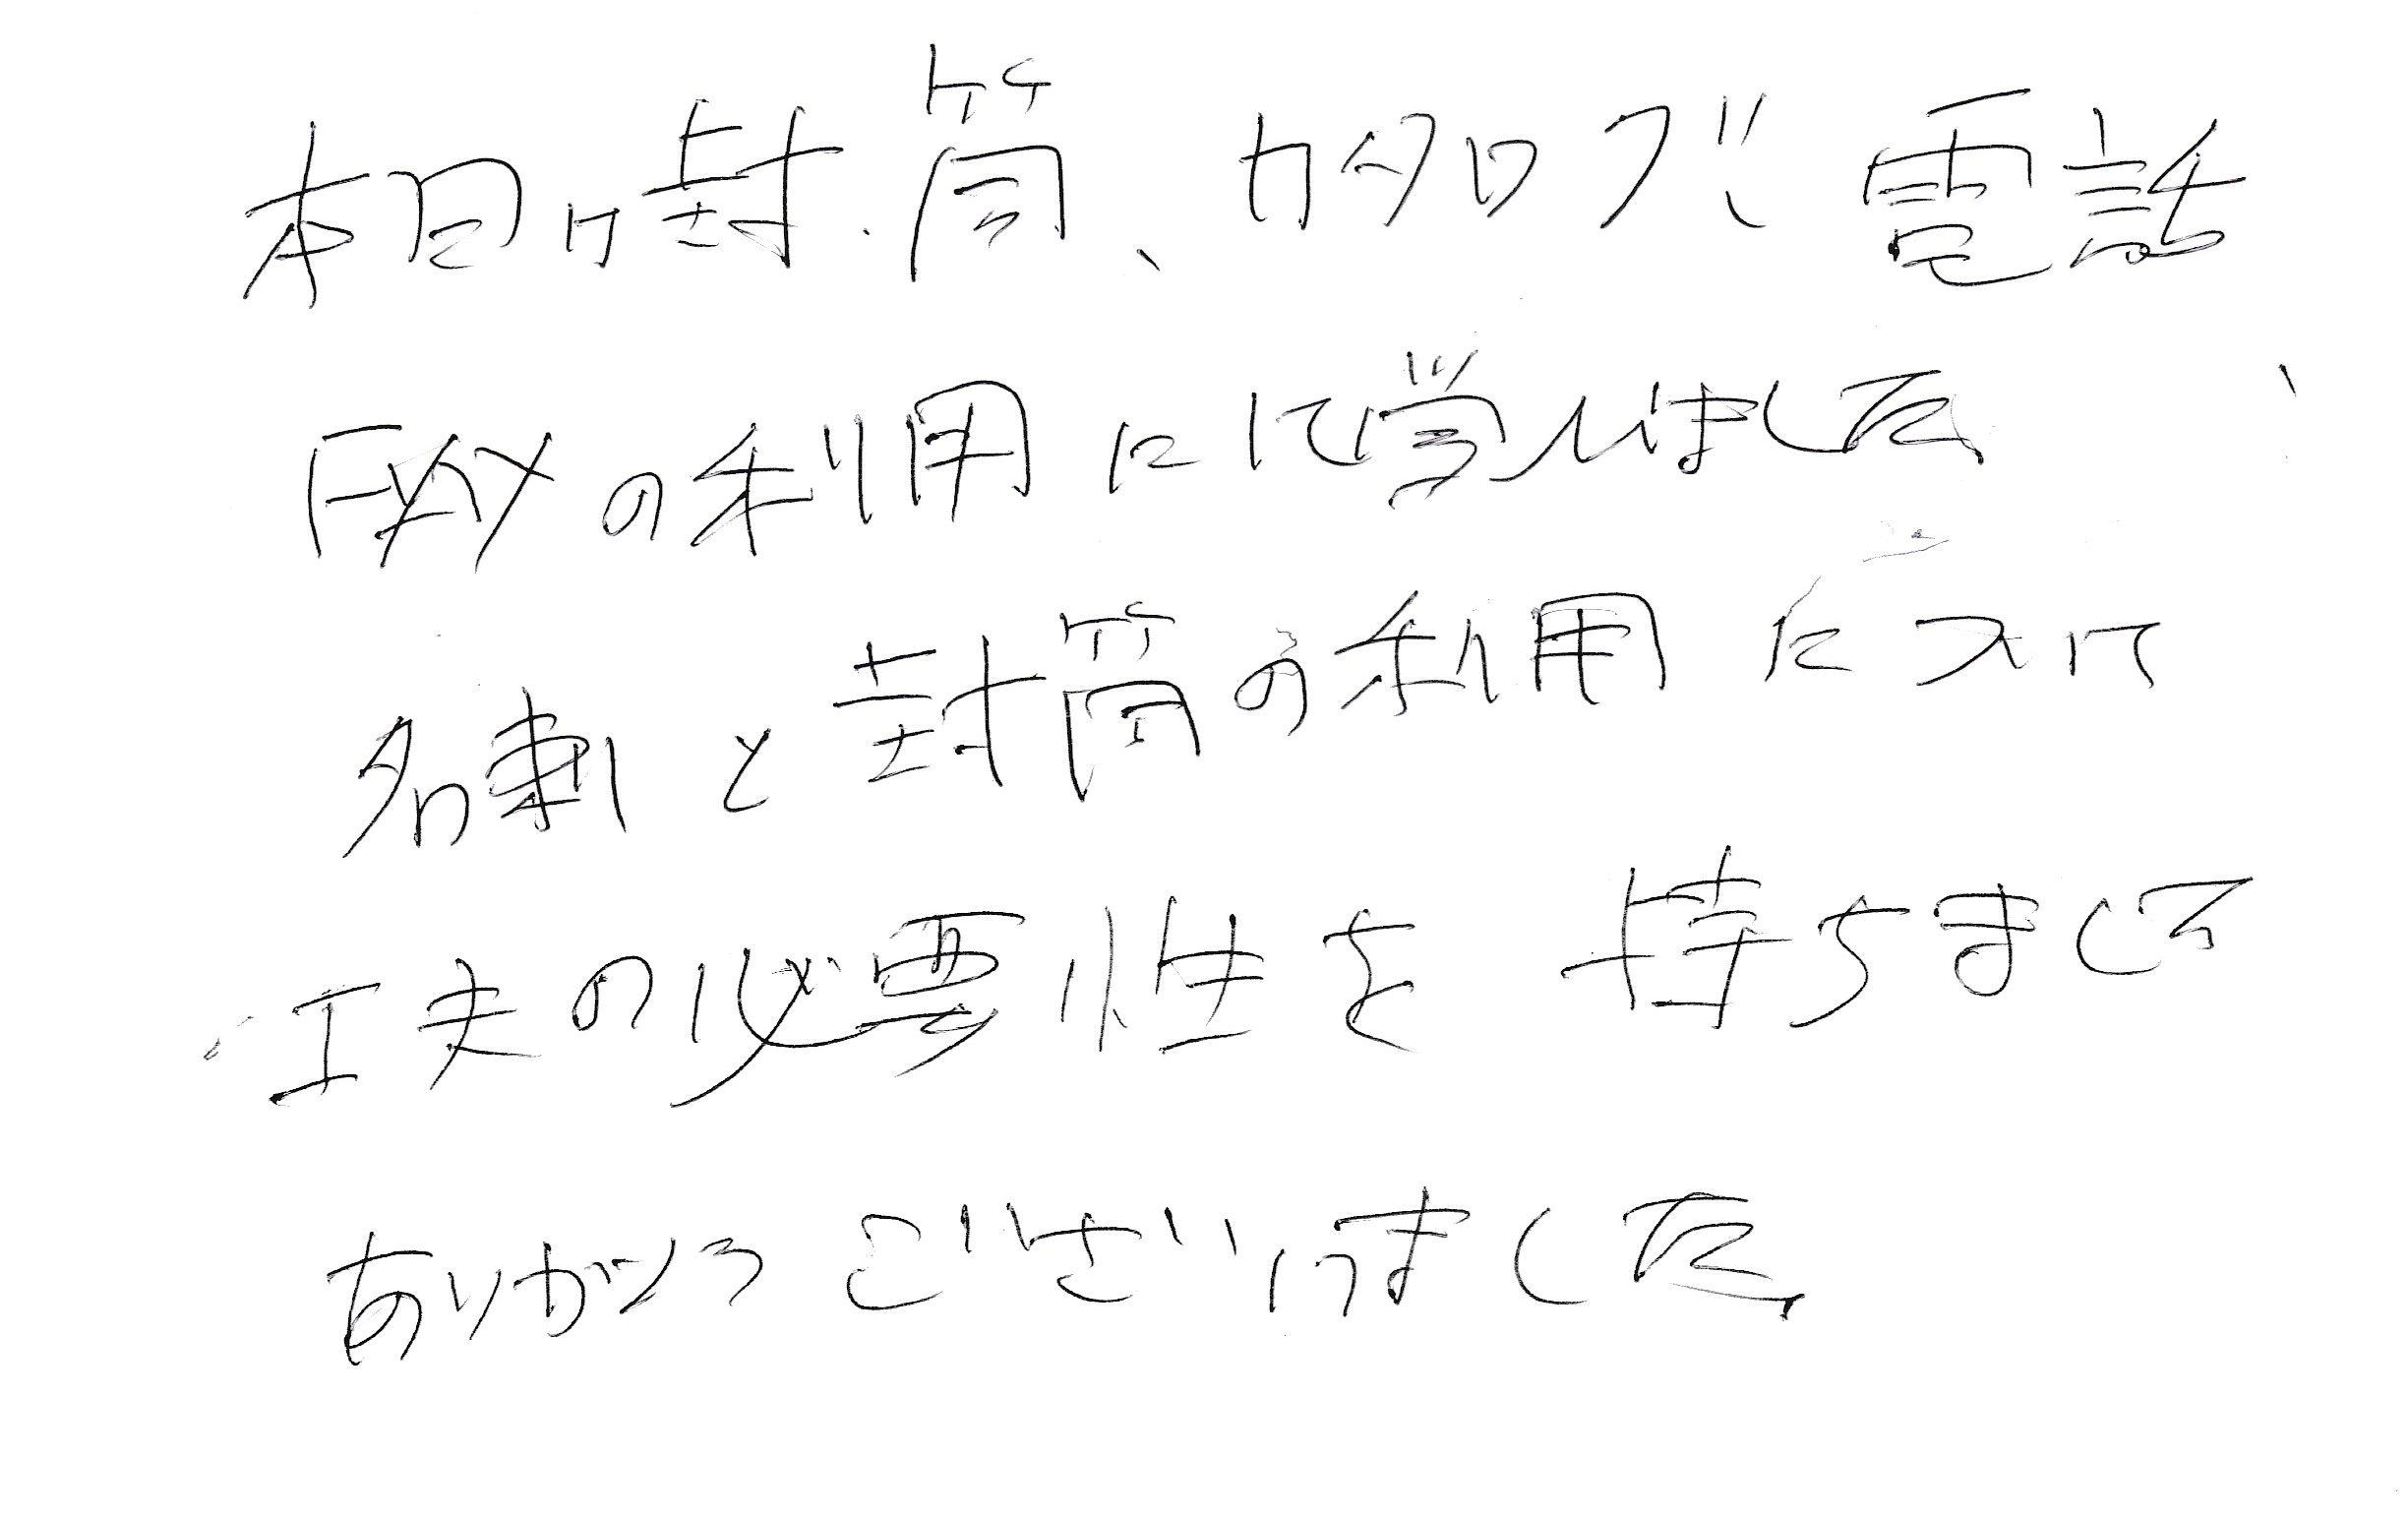 本日は封筒、カタログ、電話、
FAXの利用にに学びました
名刺と封筒の利用について
工夫の必要性を持ちました
ありがとうございました